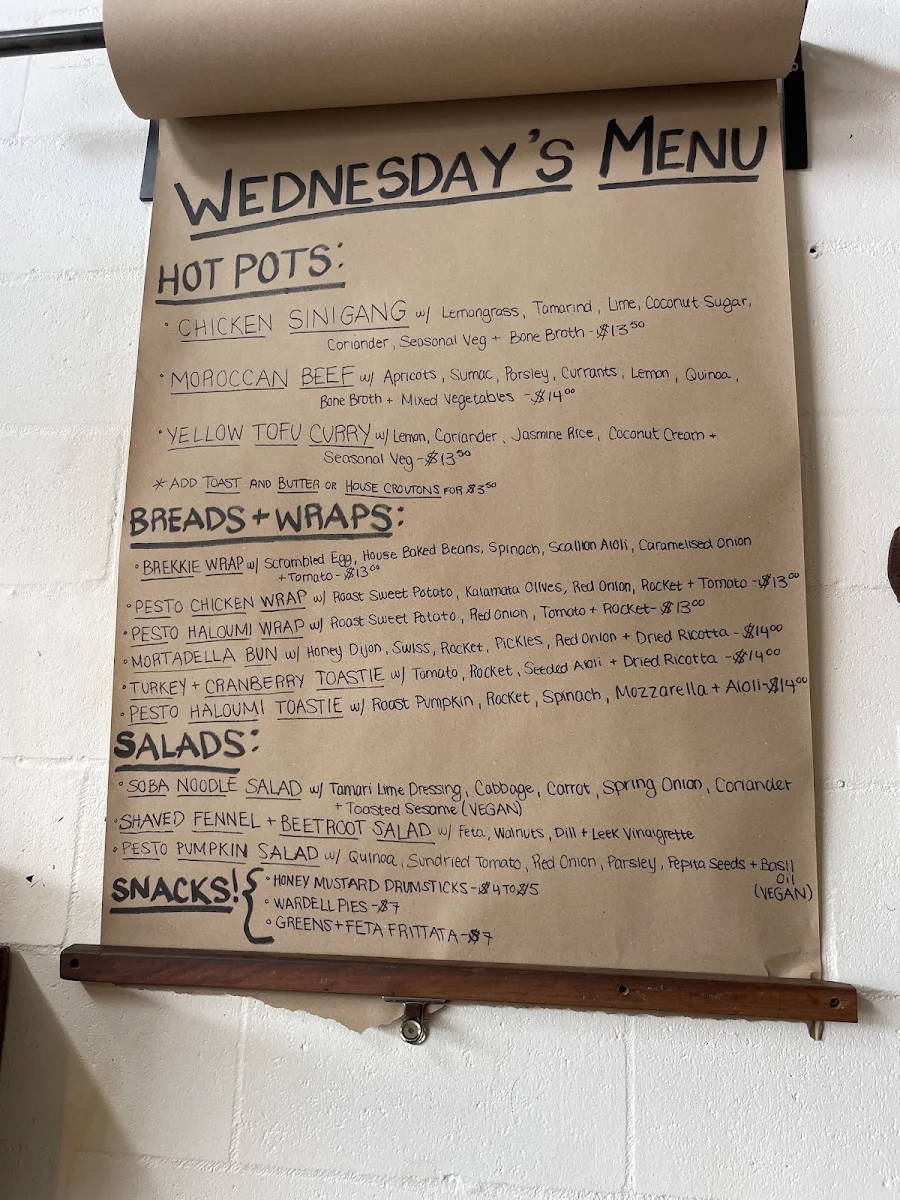 WEDNESDAY'S MENU
HOT POTS:
• CHICKEN SINIGANG w/ Lemongrass, Tamarind, Lime, Coconut Sugar,
Coriander, Seasonal Veg + Bone Broth - $13⁵⁰
• MOROCCAN BEEF w/ Apricots, Sumac, Parsley, Currants, Lemon, Quinoa,
Bone Broth + Mixed Vegetables - $14⁰⁰
• YELLOW TOFU CURRY w/ Lemon, Coriander, Jasmine Rice, Coconut Cream +
Seasonal Veg - $13⁵⁰
* ADD TOAST AND BUTTER OR HOUSE CROUTONS FOR $3⁵⁰
BREADS + WRAPS:
• BREKKIE WRAP w/ Scrambled Egg, House Baked Beans, Spinach, Scallion Aioli, Caramelised Onion
+ Tomato - $13⁰⁰
• PESTO CHICKEN WRAP w/ Roast Sweet Potato, Kalamata Olives, Red Onion, Rocket + Tomato - $13⁰⁰
• PESTO HALOUMI WRAP w/ Roast Sweet Potato, Red Onion, Tomato + Rocket - $13⁰⁰
• MORTADELLA BUN w/ Honey Dijon, Swiss, Rocket, Pickles, Red Onion + Dried Ricotta - $14⁰⁰
• TURKEY + CRANBERRY TOASTIE w/ Tomato, Rocket, Seeded Aioli + Dried Ricotta - $14⁰⁰
• PESTO HALOUMI TOASTIE w/ Roast Pumpkin, Rocket, Spinach, Mozzarella + Aioli - $14⁰⁰
SALADS:
• SOBA NOODLE SALAD w/ Tamari Lime Dressing, Cabbage, Carrot, Spring Onion, Coriander
+ Toasted Sesame (VEGAN)
• SHAVED FENNEL + BEETROOT SALAD w/ Feta, Walnuts, Dill + Leek Vinaigrette
• PESTO PUMPKIN SALAD w/ Quinoa, Sundried Tomato, Red Onion, Parsley, Pepita Seeds + Basil
Oil
(VEGAN)
SNACKS!
• HONEY MUSTARD DRUMSTICKS - $4 TO $5
• WARDELL PIES - $7
• GREENS + FETA FRITTATA - $7